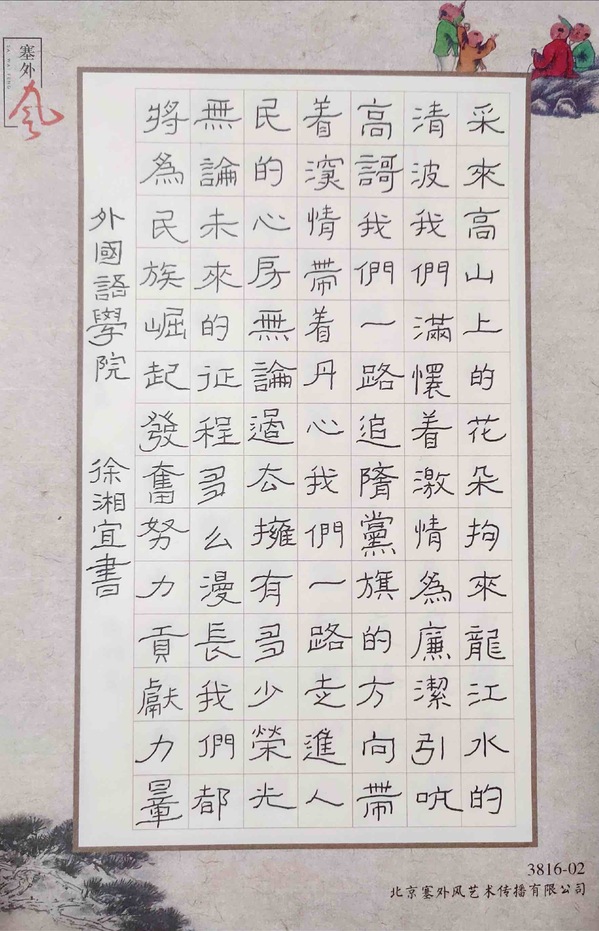 塞外
风
采來高山上的花朵拘來龍江水的
清波我們滿懷着激情為廉潔引吭
高謌我們一路追隨黨旗的方向帶
着深情帶着丹心我們一路走進人
民的心房無論過去擁有多少榮光
無論未來的征程多么漫長我們都
將為民族崛起發奮努力貢獻力量
外國語學院 徐湘宜書
3816-02
北京塞外风艺术传播有限公司